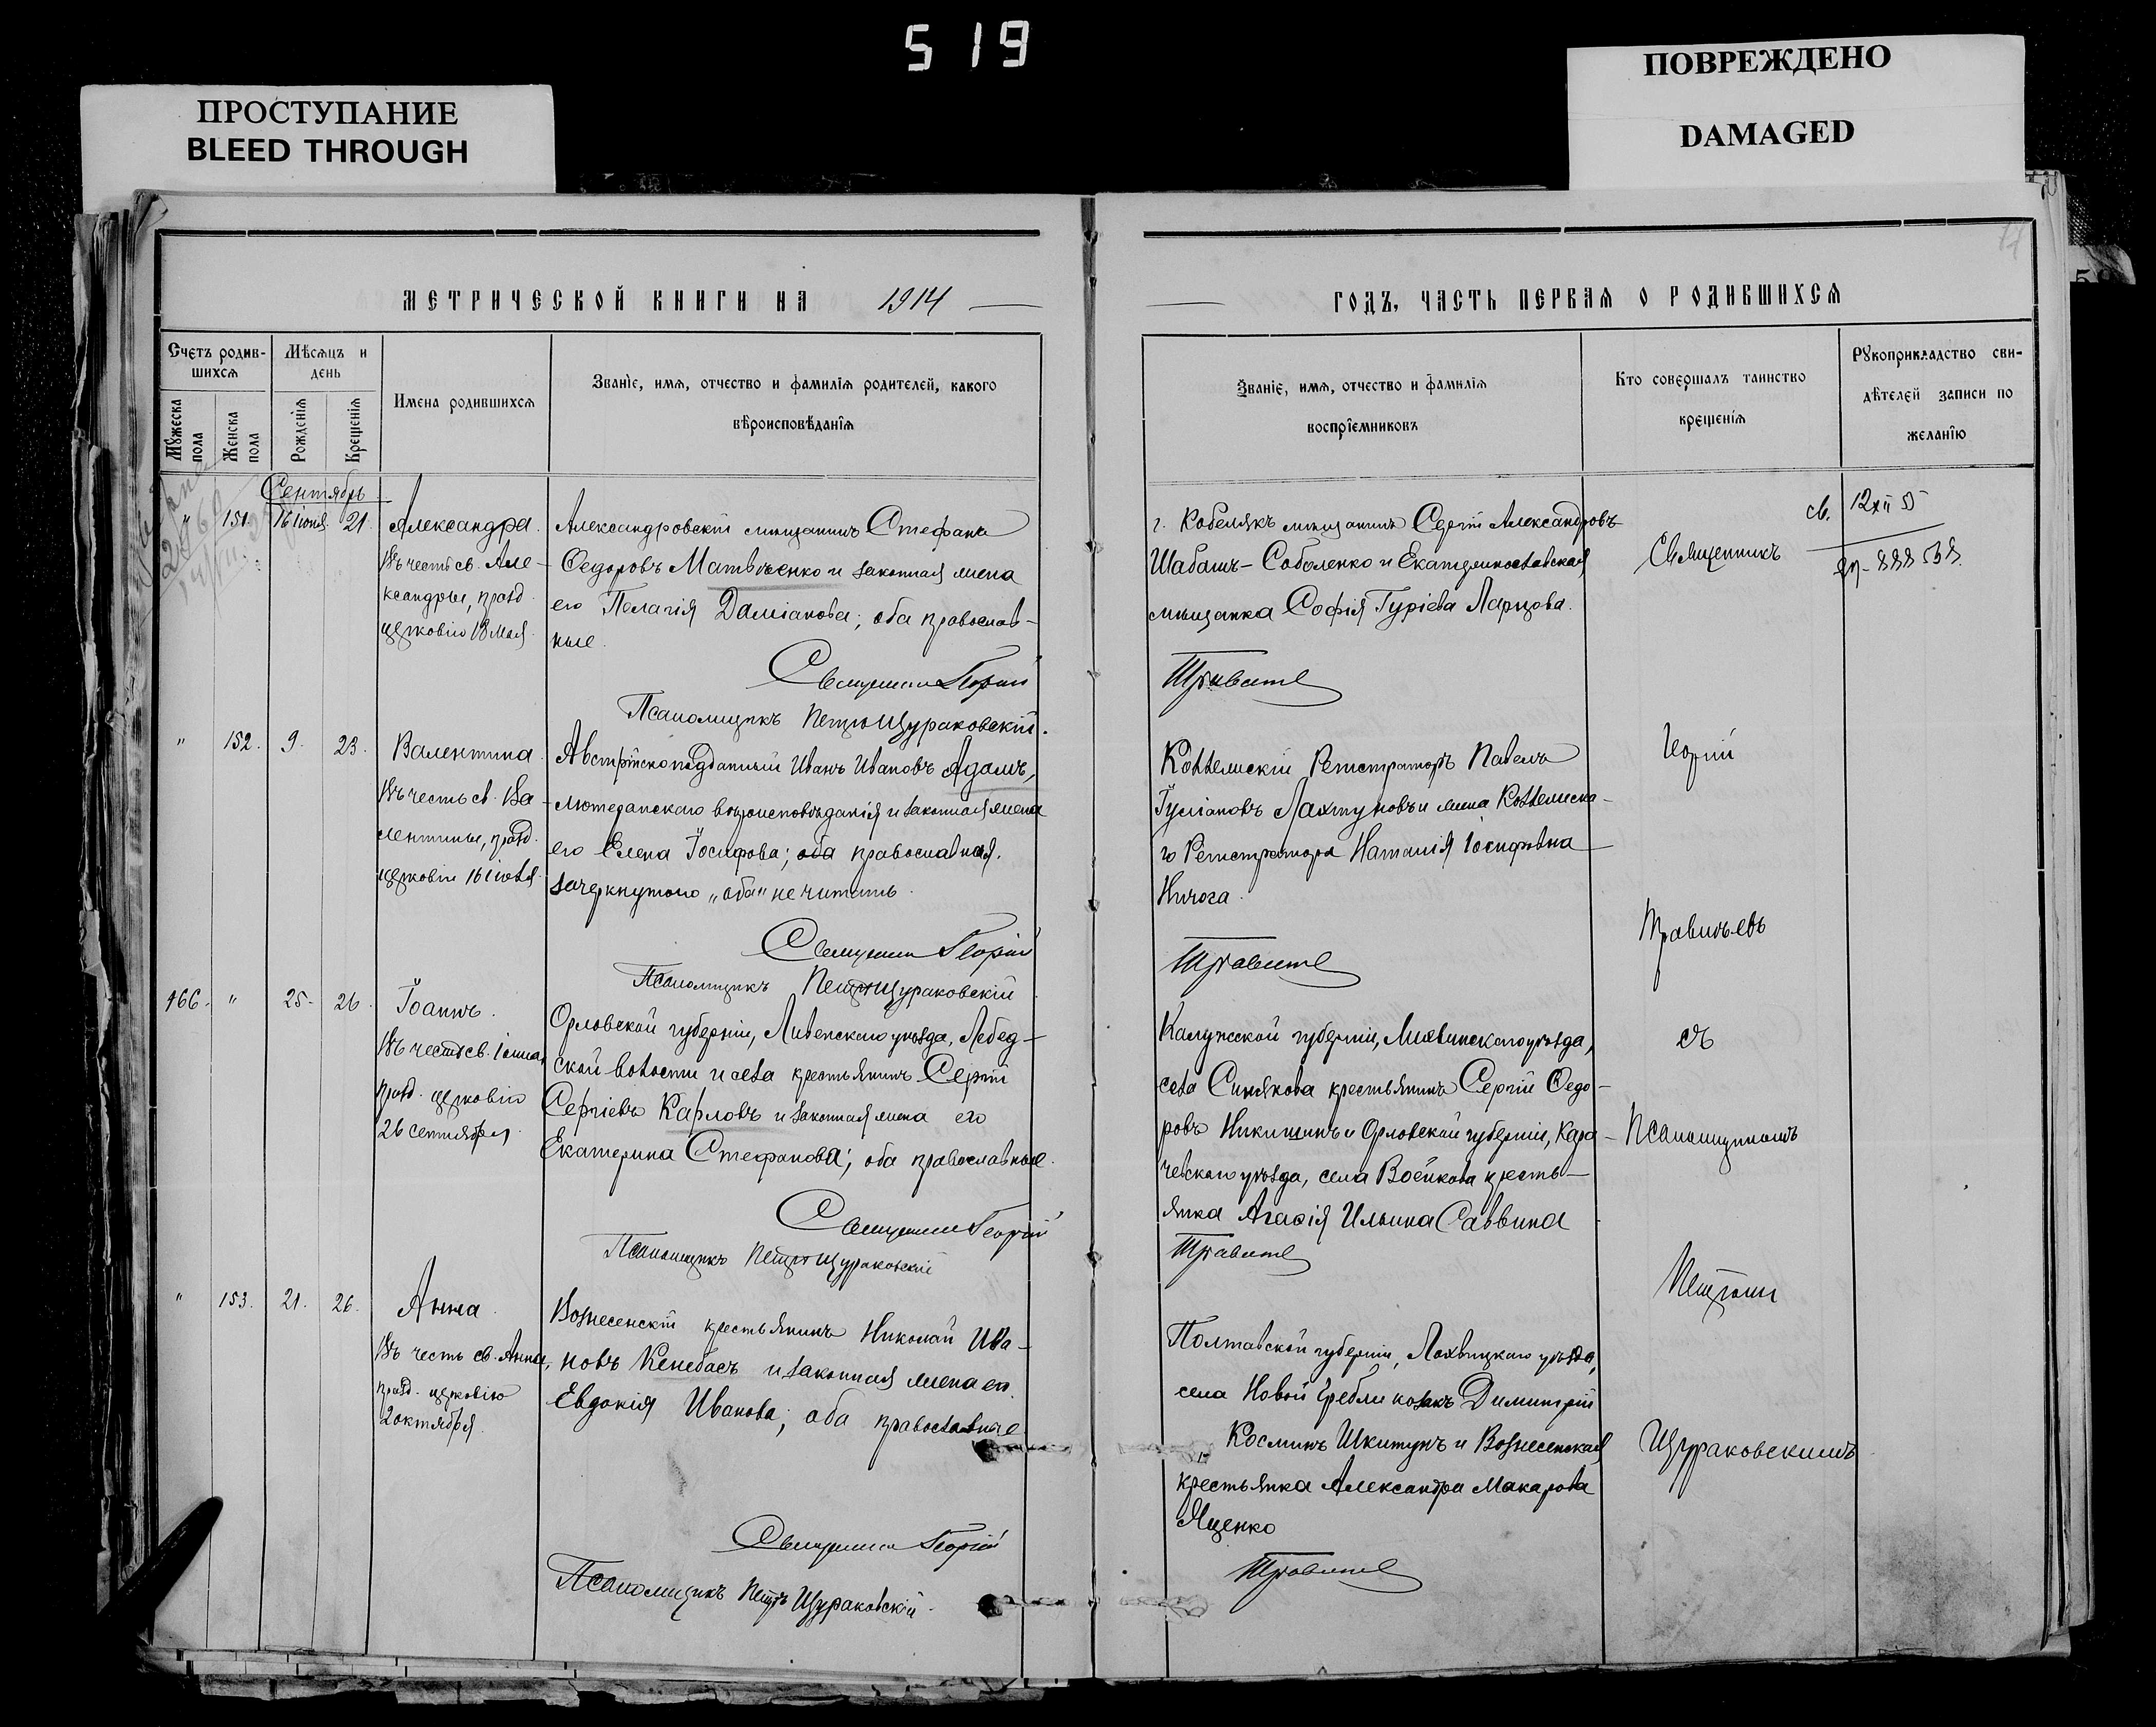 519
ПРОСТУПАНИЕ
BLEED THROUGH
ПОВРЕЖДЕНО
DAMAGED
МЕТРИЧЕСКОЙ КНИГИ НА 1914
ГОДЪ, ЧАСТЬ ПЕРВАЯ О РОДИВШИХСЯ
Счетъ родив-
шихся
Мужеска пола
Женска пола
Мѣсяцъ и
день
Рожденія
Крещенія
Имена родившихся
Званіе, имя, отчество и фамилія родителей, какого
вѣроисповѣданія
Званіе, имя, отчество и фамилія
воспріемниковъ
Кто совершалъ таинство
крещенія
Рукоприкладство сви-
дѣтелей записи по
желанію
Сентябрь
" 151. 16 іюня. 21.
Александра.
Въ честь св. Але-
ксандры, празд.
церковію 18 мая.
Александровскій мѣщанинъ Стефанъ
Ѳедоровъ Матвѣенко и законная жена
его Пелагія Даміанова; оба православ-
ные.
Священникъ Георгій
Псаломщикъ Петръ Щураковскій.
г. Кобелякъ мѣщанинъ Сергій Александровъ
Шабашъ-Соболенко и Екатеринославская
мѣщанка Софія Гуріева Ларцова.
Священникъ
св. 12 XII 55
" 152. 9. 23.
Валентина.
Въ честь св. Ва-
лентины, празд.
церковію 16 іюля.
Австрійскоподданный Иванъ Ивановъ Адамъ,
лютеранскаго вѣроисповѣданія и законная жена
его Елена Іосифова; оба православная.
зачеркнутого „оба" не читать.
Священникъ Георгій
Псаломщикъ Петръ Щураковскій
Коллежскій Регистраторъ Павелъ
Іуліановъ Лахтуновъ и жена Коллежска-
го Регистратора Наталія Іосифовна
Ничога.
Георгій
Правильевъ
166. " 25. 26.
Іоаннъ.
Въ честь св. Іоанна,
празд. церковію
26 сентября.
Орловской губерніи, Ливенскаго уѣзда, Лебед-
ской волости и села крестьянинъ Сергій
Сергіевъ Карловъ и законная жена его
Екатерина Стефанова; оба православные.
Священникъ Георгій
Псаломщикъ Петръ Щураковскій
Калужской губерніи, Лихвинскаго уѣзда,
села Синякова крестьянинъ Сергій Ѳедо-
ровъ Никишинъ и Орловской губерніи, Кара-
чевскаго уѣзда, села Войкова кресть-
янка Агаѳія Ильина Саввина
съ
Псаломщикомъ
" 153. 21. 26.
Анна.
Въ честь св. Анны,
празд. церковію
2 октября.
Вознесенскій крестьянинъ Николай Ива-
новъ Кенебасъ и законная жена его
Евдокія Иванова; оба православные.
Священникъ Георгій
Псаломщикъ Петръ Щураковскій.
Полтавской губерніи, Лохвицкаго уѣзда,
села Новой Гребли козакъ Димитрій
Косминъ Шкитунъ и Вознесенская
крестьянка Александра Макарова
Яценко
Петромъ
Щураковскимъ